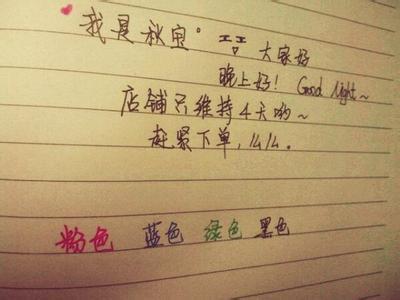 我是秋宝。大家好
晚上好! Good Night~
店铺只维持4天哟~
赶紧下单,么么。
粉色 蓝色 绿色 黑色